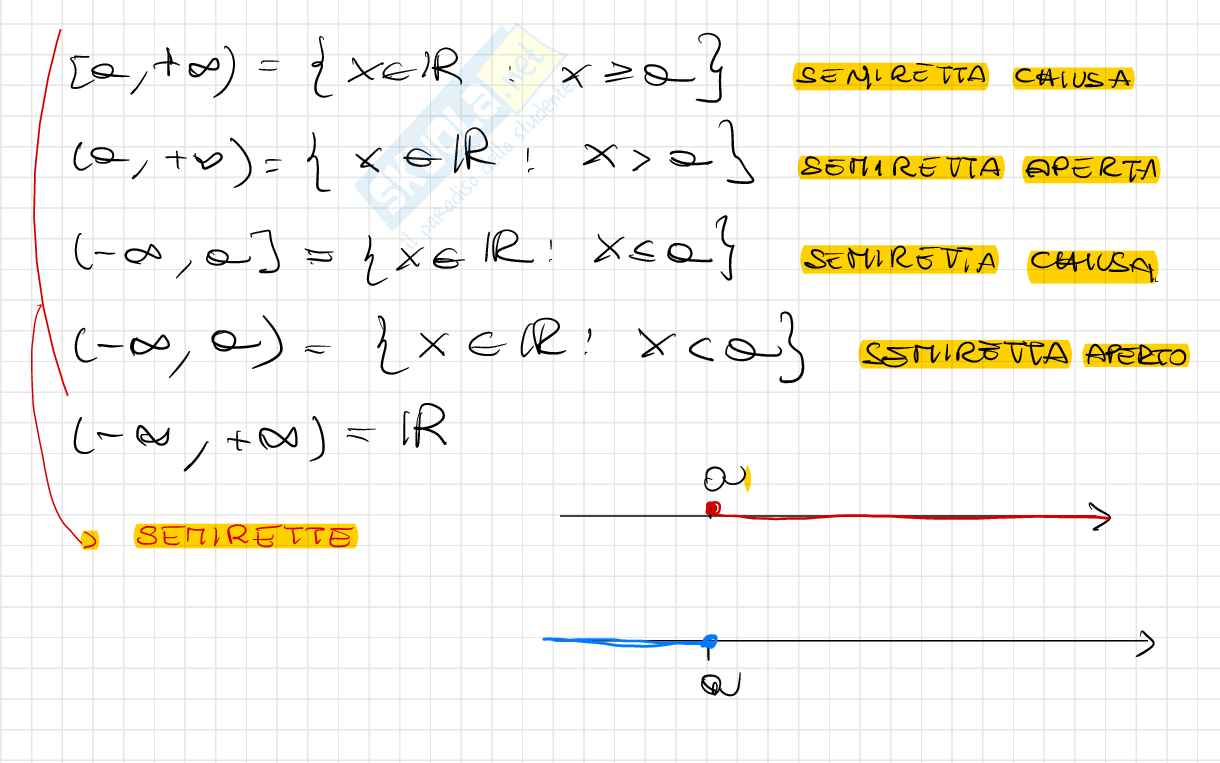 [a, +∞) = { x ∈ ℝ : x ≥ a } SEMIRETTA CHIUSA
(a, +∞) = { x ∈ ℝ : x > a } SEMIRETTA APERTA
(-∞, a] = { x ∈ ℝ : x ≤ a } SEMIRETTA CHIUSA
(-∞, a) = { x ∈ ℝ : x < a } SEMIRETTA APERTO
(-∞, +∞) = ℝ
a
SEMIRETTE
a
skuola.net
il paradiso dello studente